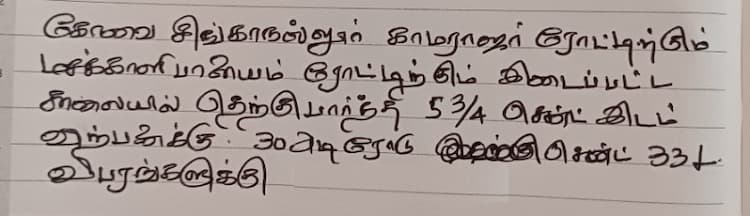 கோவை சிங்காநல்லூர் காமராஜர் ரோட்டிற்கும்
மசக்காளிபாளையம் ரோட்டிற்கும் இடைப்பட்ட
சாலையில் தெற்கு பார்த்த 5 3/4 சென்ட் இடம்
விற்பனைக்கு. 30 அடி ரோடு சென்ட் 33 L
விபரங்களுக்கு